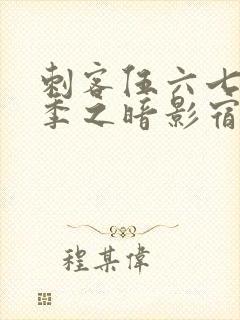 刺客伍六七
季之暗影宿
程某偉